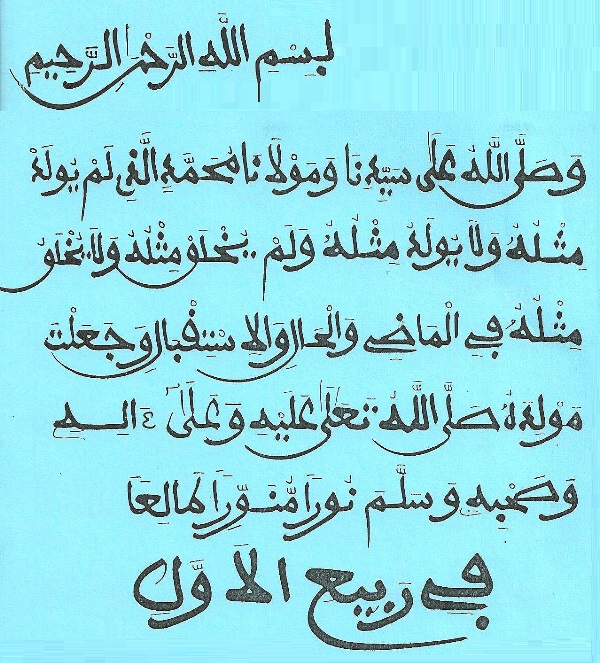 بِسْمِ اللَّهِ الرَّحْمَٰنِ الرَّحِيمِ
وَصَلَّى اللَّهُ عَلَى سَيِّدِنَا وَمَوْلَانَا مُحَمَّدٍ الَّذِي لَمْ يُولَدْ
مِثْلُهُ وَلَا يُولَدُ مِثْلُهُ وَلَمْ يُخْلَقْ مِثْلُهُ وَلَا يُخْلَقُ
مِثْلُهُ فِي الْمَاضِي وَالْحَالِ وَالِاسْتِقْبَالِ وَجَعَلْتَ
مَوْلِدَهُ صَلَّى اللَّهُ تَعَلَى عَلَيْهِ وَعَلَى ءَالِهِ
وَصَحْبِهِ وَسَلَّمَ نُورًا مُّنَوِّرًا طَالِعًا
فِي رَبِيعِ الْأَوَّلِ